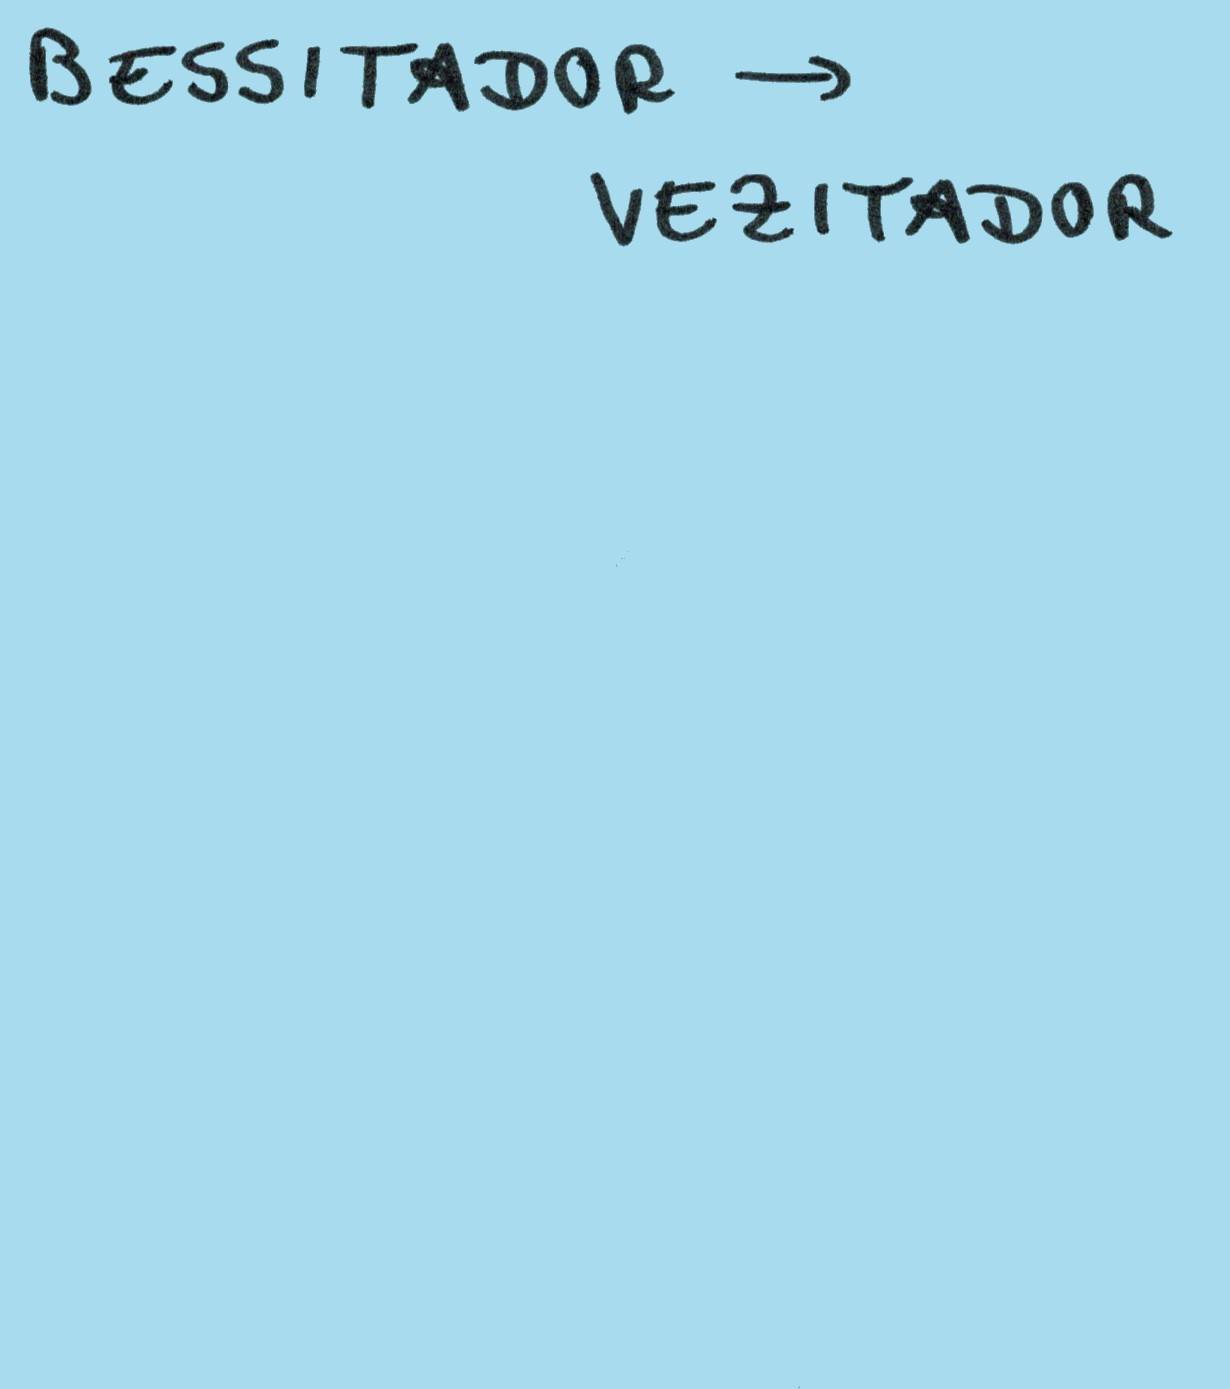 BESSITADOR →
VEZITADOR